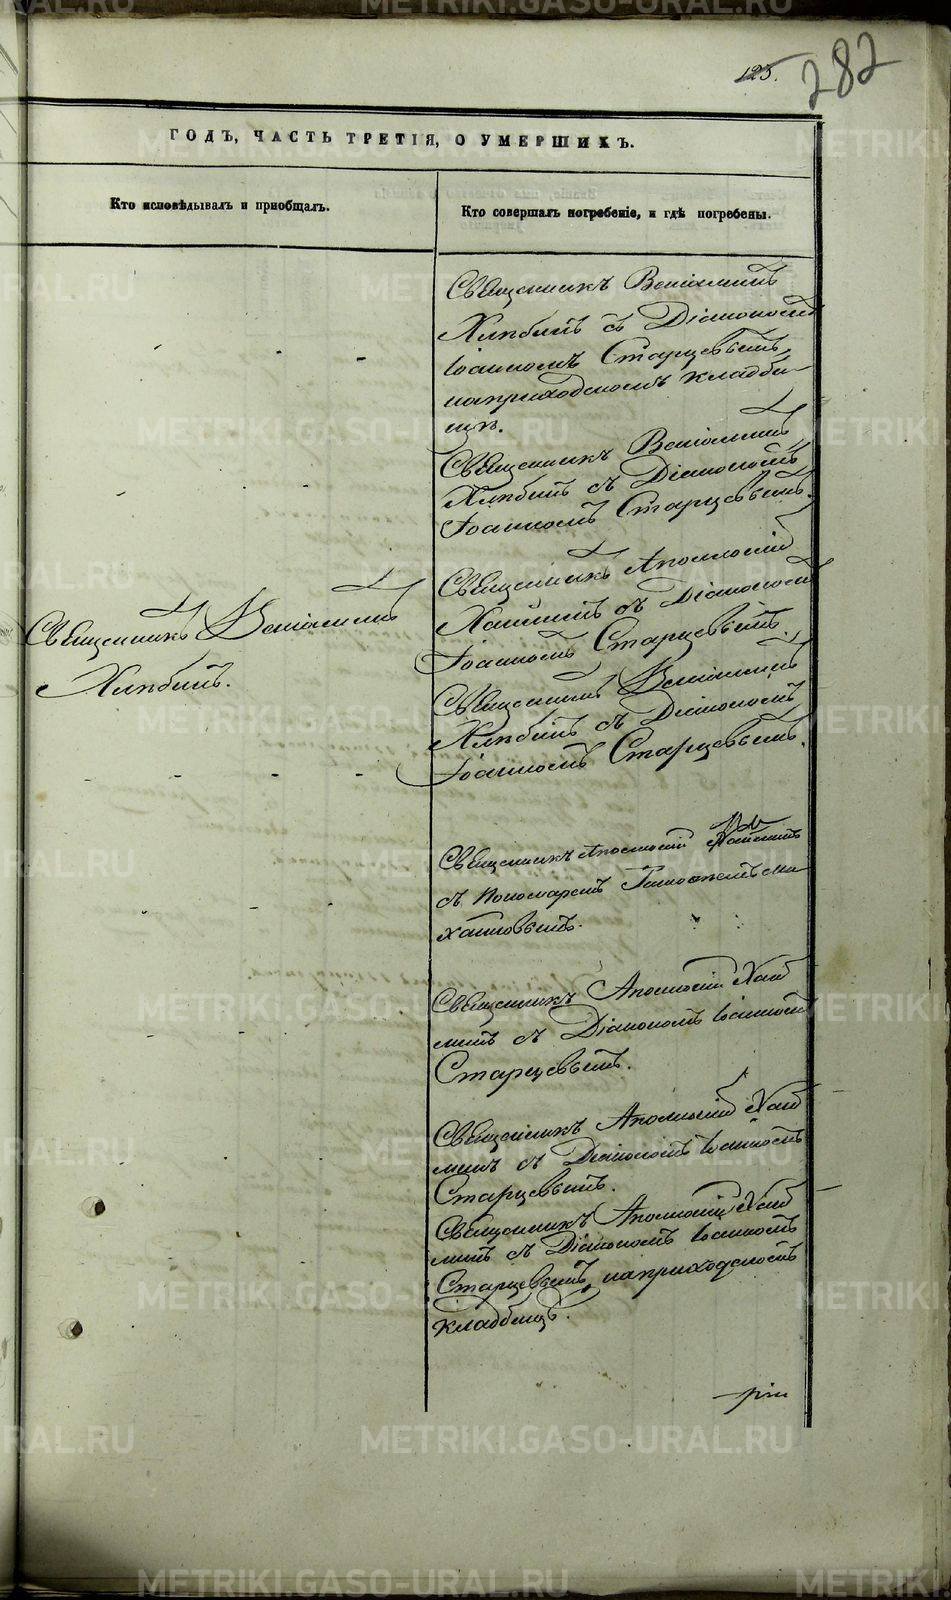 125.
282
ГОДЪ, ЧАСТЬ ТРЕТІЯ, О УМЕРШИХЪ.
Кто исповѣдывалъ и приобщалъ.
Кто совершалъ погребеніе, и гдѣ погребены.
Священникъ Веніаминъ
Хлѣбинъ съ Діакономъ
Іоанномъ Старцевымъ,
на приходскомъ кладби-
щѣ.
Священникъ Веніаминъ
Хлѣбинъ съ Діакономъ
Іоанномъ Старцевымъ.
Священникъ Аполлоній
съ Діакономъ
Іоанномъ Старцевымъ.
Священникъ Веніаминъ
Хлѣбинъ.
Священникъ Веніаминъ
Хлѣбинъ съ Діакономъ
Іоанномъ Старцевымъ.
Священникъ Аполлоній
съ Пономаремъ
Священникъ Аполлоній
съ Діакономъ Іоанномъ
Старцевымъ.
Священникъ Аполлоній
съ Діакономъ Іоанномъ
Старцевымъ.
Священникъ Аполлоній
съ Діакономъ Іоанномъ
Старцевымъ, на приходскомъ
кладбищѣ.
METRIKI.GASO-URAL.RU